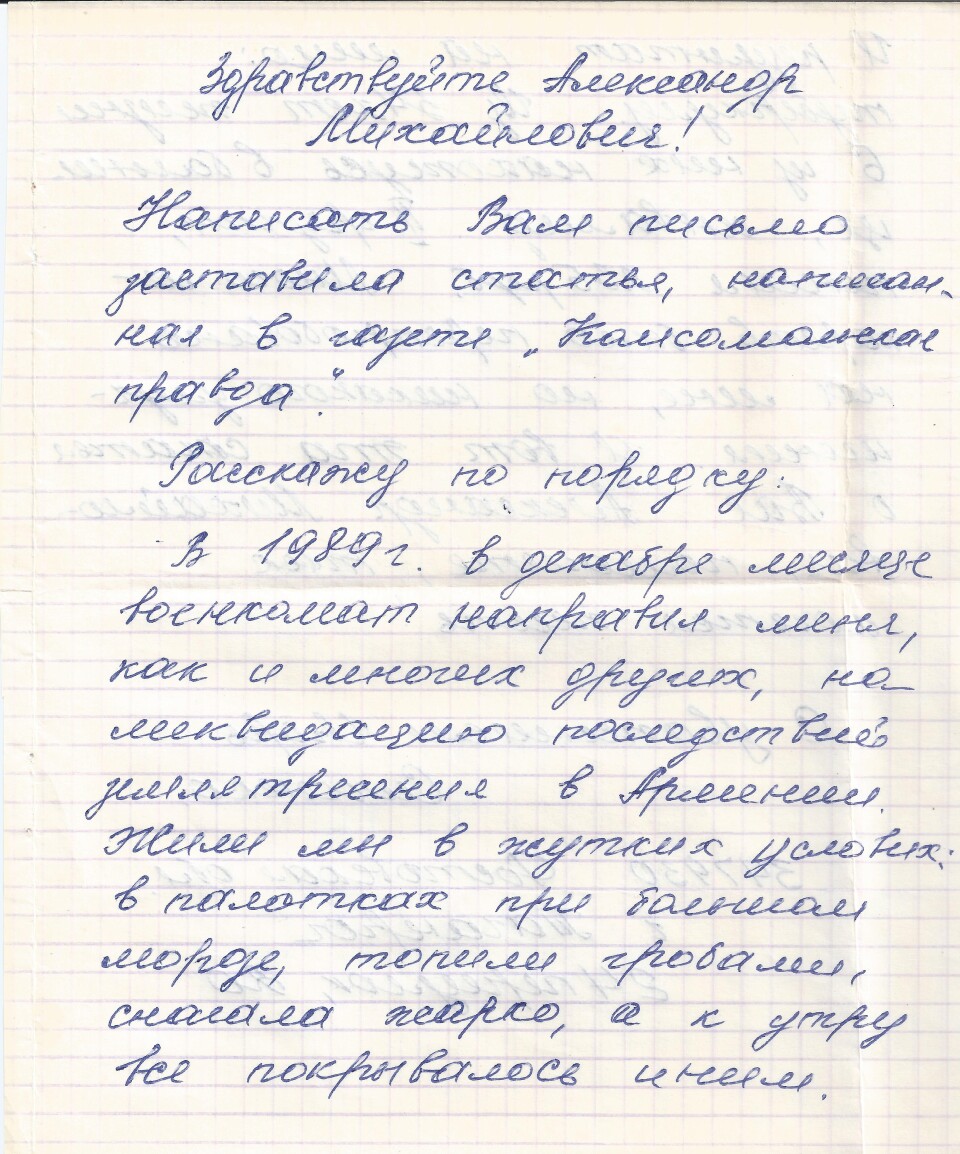 Здравствуйте Александр
Михайлович!
Написать Вам письмо
заставила статья, написан-
ная в газете „Комсомольская
правда".
Расскажу по порядку:
В 1989г. в декабре месяце
военкомат направил меня,
как и многих других, на
ликвидацию последствий
землятресения в Армении.
Жили мы в жутких условиях:
в палатках при большом
морозе, топили гробами,
сначала жарко, а к утру
все покрывалось инием.